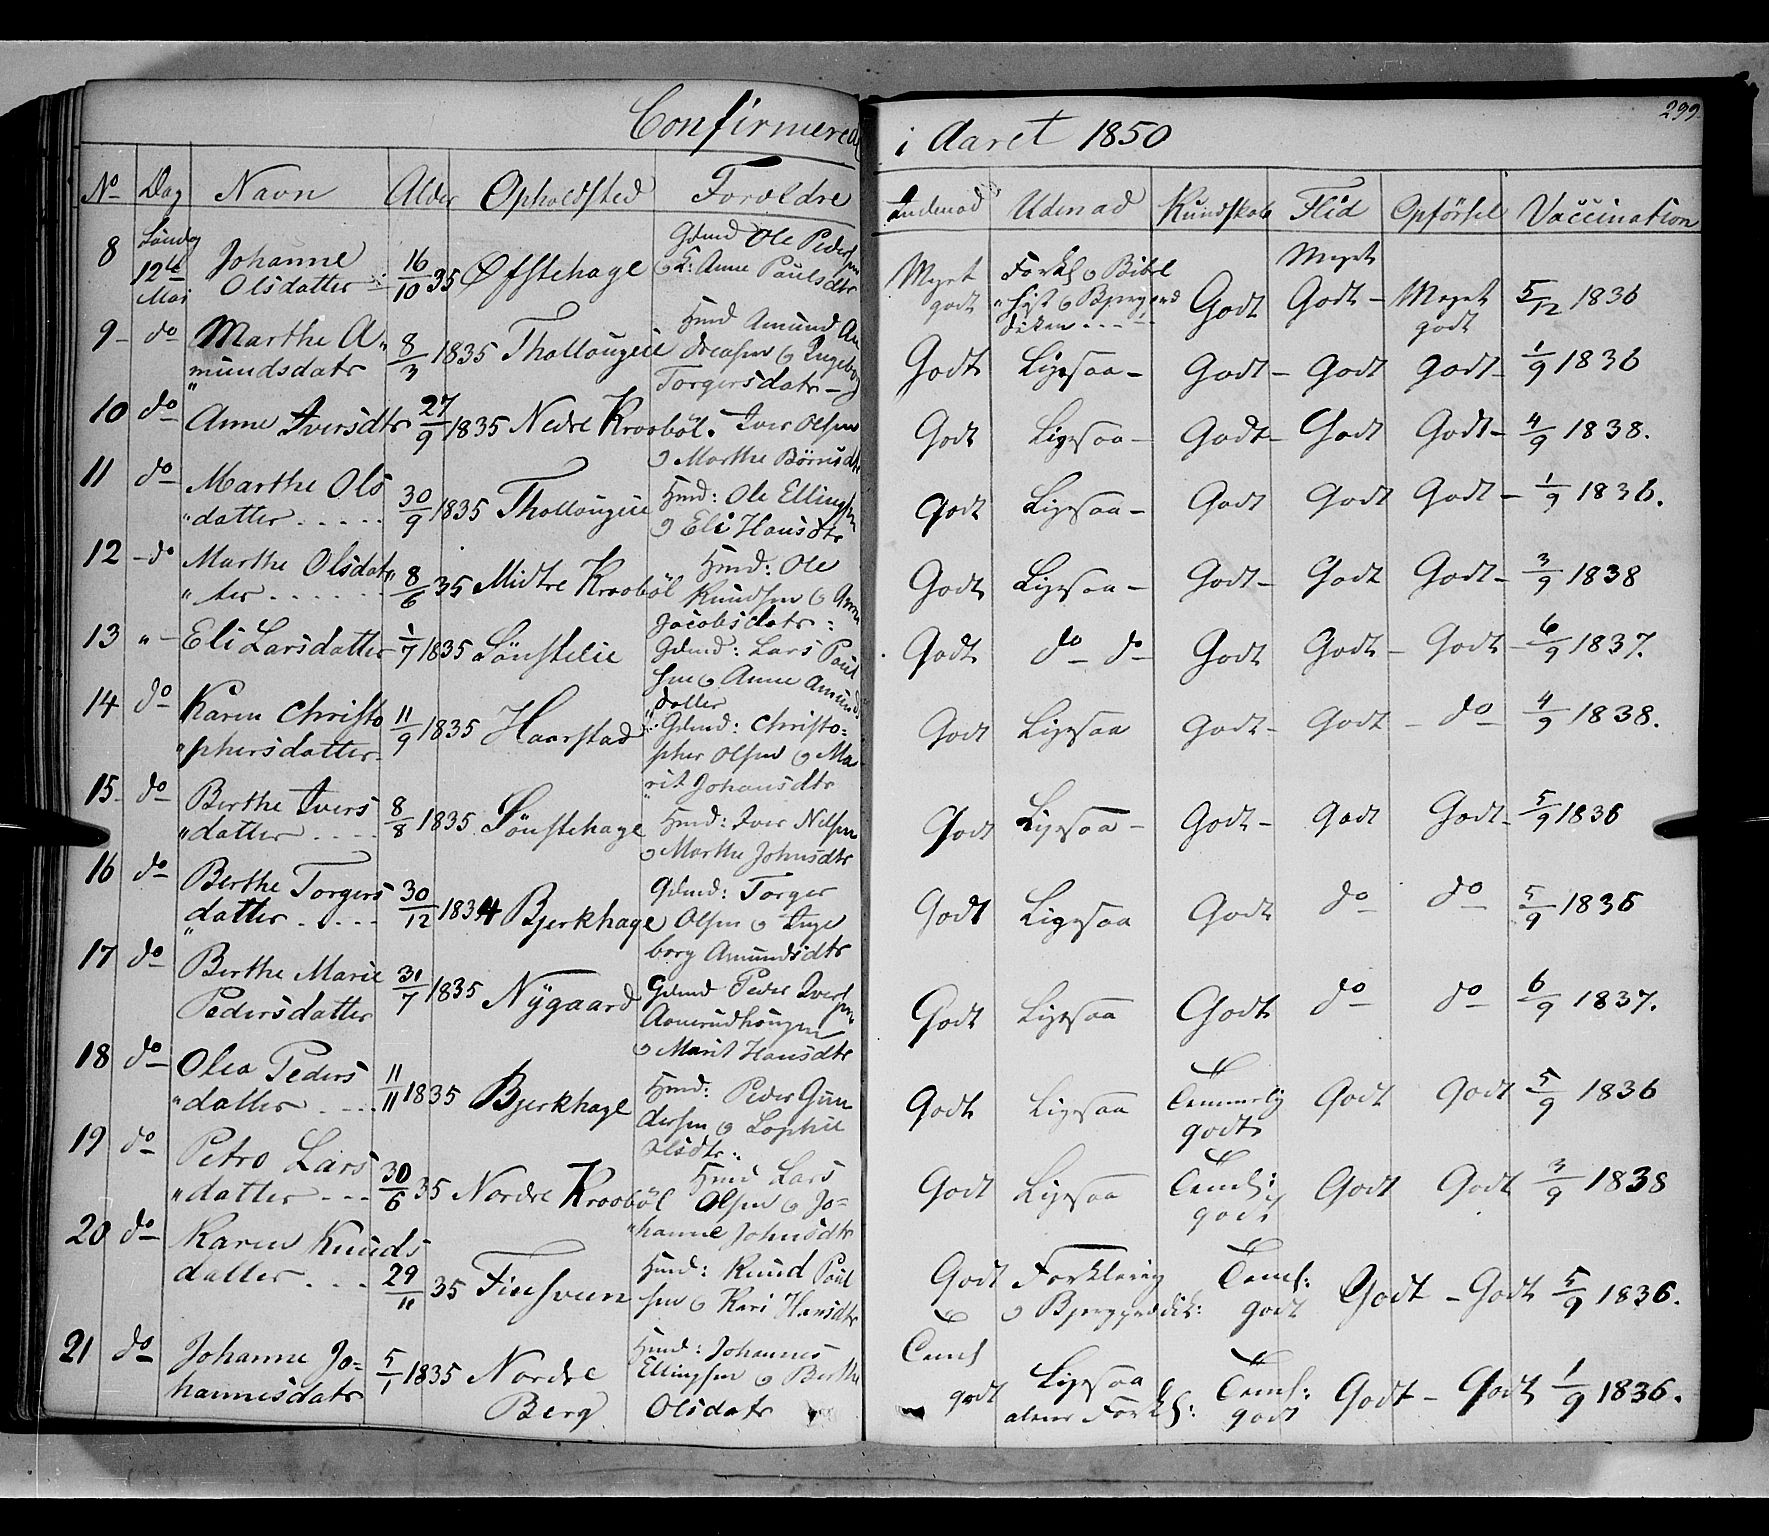 Confirmerede
i Aaret 1850
299
No Dag Navn Alder Opholdsted Forældre Indenad Udenad Kundskab Flid Opførsel Vaccination
8 Søndag 12te Mai Johanne Olsdatter 16/10 35 Øfstehage Gdmd Ole Pedersen o K: Anne Paulsdtr Meget godt Forkl o Bibl Hist o Godt Meget Godt - Meget godt 5/12 1836
9 do Marthe Amundsdatr 8/3 1835 Thollougeie Hmd Amund Andreasen o Ingeborg Torgersdatr - Godt Ligesaa - Godt - Godt Godt - 1/9 1836
10 do Anne Iversdtr 27/9 1835 Nedre Kroobøl. Iver Olsen o Marthe Børnsdtr Godt Ligesaa - Godt - Godt Godt - 4/9 1838.
11 do Marthe Ols datter 30/9 1835 Thollougeie Hmd: Ole Ellingsen o Eli Hansdtr Godt Ligesaa - Godt Godt Godt - 1/9 1836.
12 do Marthe Olsdatter 8/6 35 Midtre Kroobøl Hmd: Ole Knudsen o Anne Jacobsdatr: Godt Ligesaa - Godt - Godt Godt - 3/9 1838
13 " Eli Larsdatter 1/7 1835 Sønstelie Gdmd: Lars Paulsen o Anne Amunds datter Godt do do Godt Godt - Godt - 6/9 1837.
14 do Karen Christophersdatter 11/9 1835 Haarstad Gdmd: Christopher Olsen o Marit Johansdtr Godt Ligesaa Godt - Godt - do 4/9 1838.
15 do Berthe Ivers datter 8/8 1835 Sønstehage Hmd: Iver Nelsen o Marthe Johnsdtr Godt Ligesaa - Godt - Godt Godt - 5/9 1836
16 do Berthe Torgers datter 30/12 1834 Bjerkhage Gdmd: Torger Olsen o Ingeborg Amundsdtr Godt Ligesaa Godt do do 5/9 1836
17 do Berthe Marie Pedersdatter 31/7 1835 Nÿgaard Gdmd Peder Iversen o Marit Hansdtr Godt Ligesaa Godt do do 6/9 1837.
18 do Olea Peders datter 11/11 1835 Bjerkhage Hmd: Peder Gundersen o Sophie Olsdtr: Godt Ligesaa Temmelig godt Godt Godt 5/9 1836
19 do Petro Lars datter 30/6 35 Nordre Kroobøl Hmd Lars Olsen o Johanne Johnsdtr Godt Ligesaa Teml: godt Godt Godt 3/9 1838
20 do Karen Knuds datter 29/11 35 Hmd: Knud Paulsen o Kari Hansdtr Godt Forklaring o Teml: godt Godt - Godt 5/9 1836.
21 do Johanne Johannesdatr 5/1 1835 Nordre Berg Hmd: Johannes Ellingsen o Berthe Olsdatr Teml godt Ligesaa Teml: godt Godt - Godt 1/9 1836.